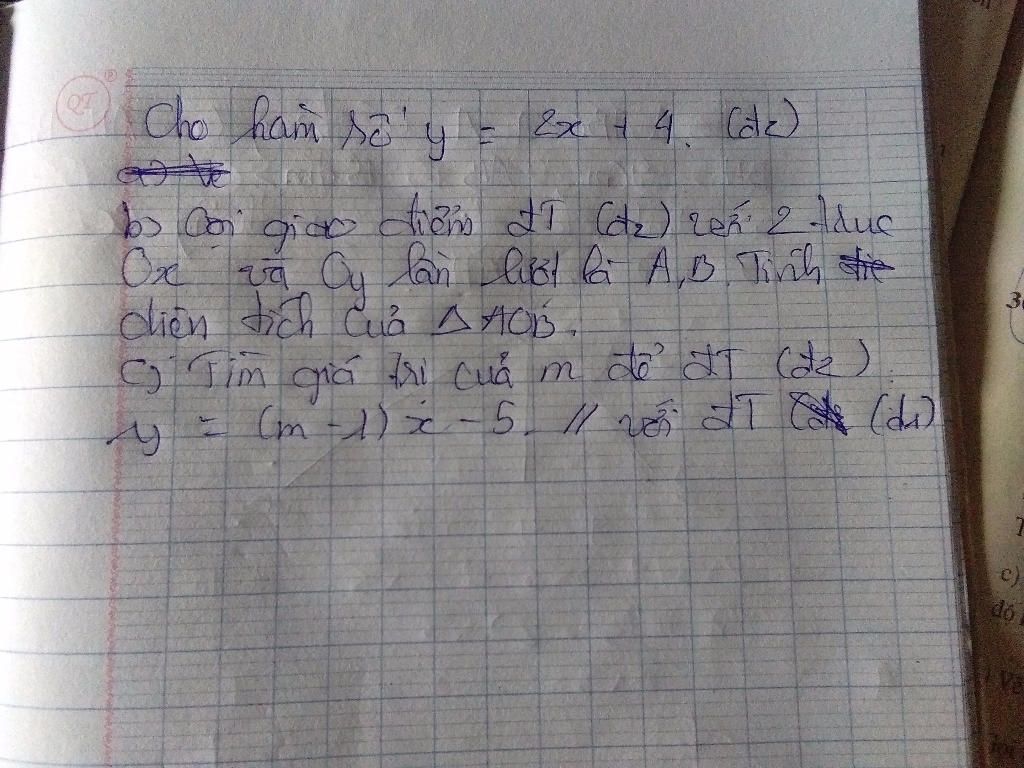 QT
Cho hàm số y = 2x + 4. (d2)
b) Gọi giao điểm đT (d2) với 2 trục
Ox và Oy lần lượt là A, B. Tính
diện tích của △ AOB.
c) Tìm giá trị của m để đT (d2)
y = (m - 1) x - 5 // với đT (d1)
3
T
c)
đó
Vẽ